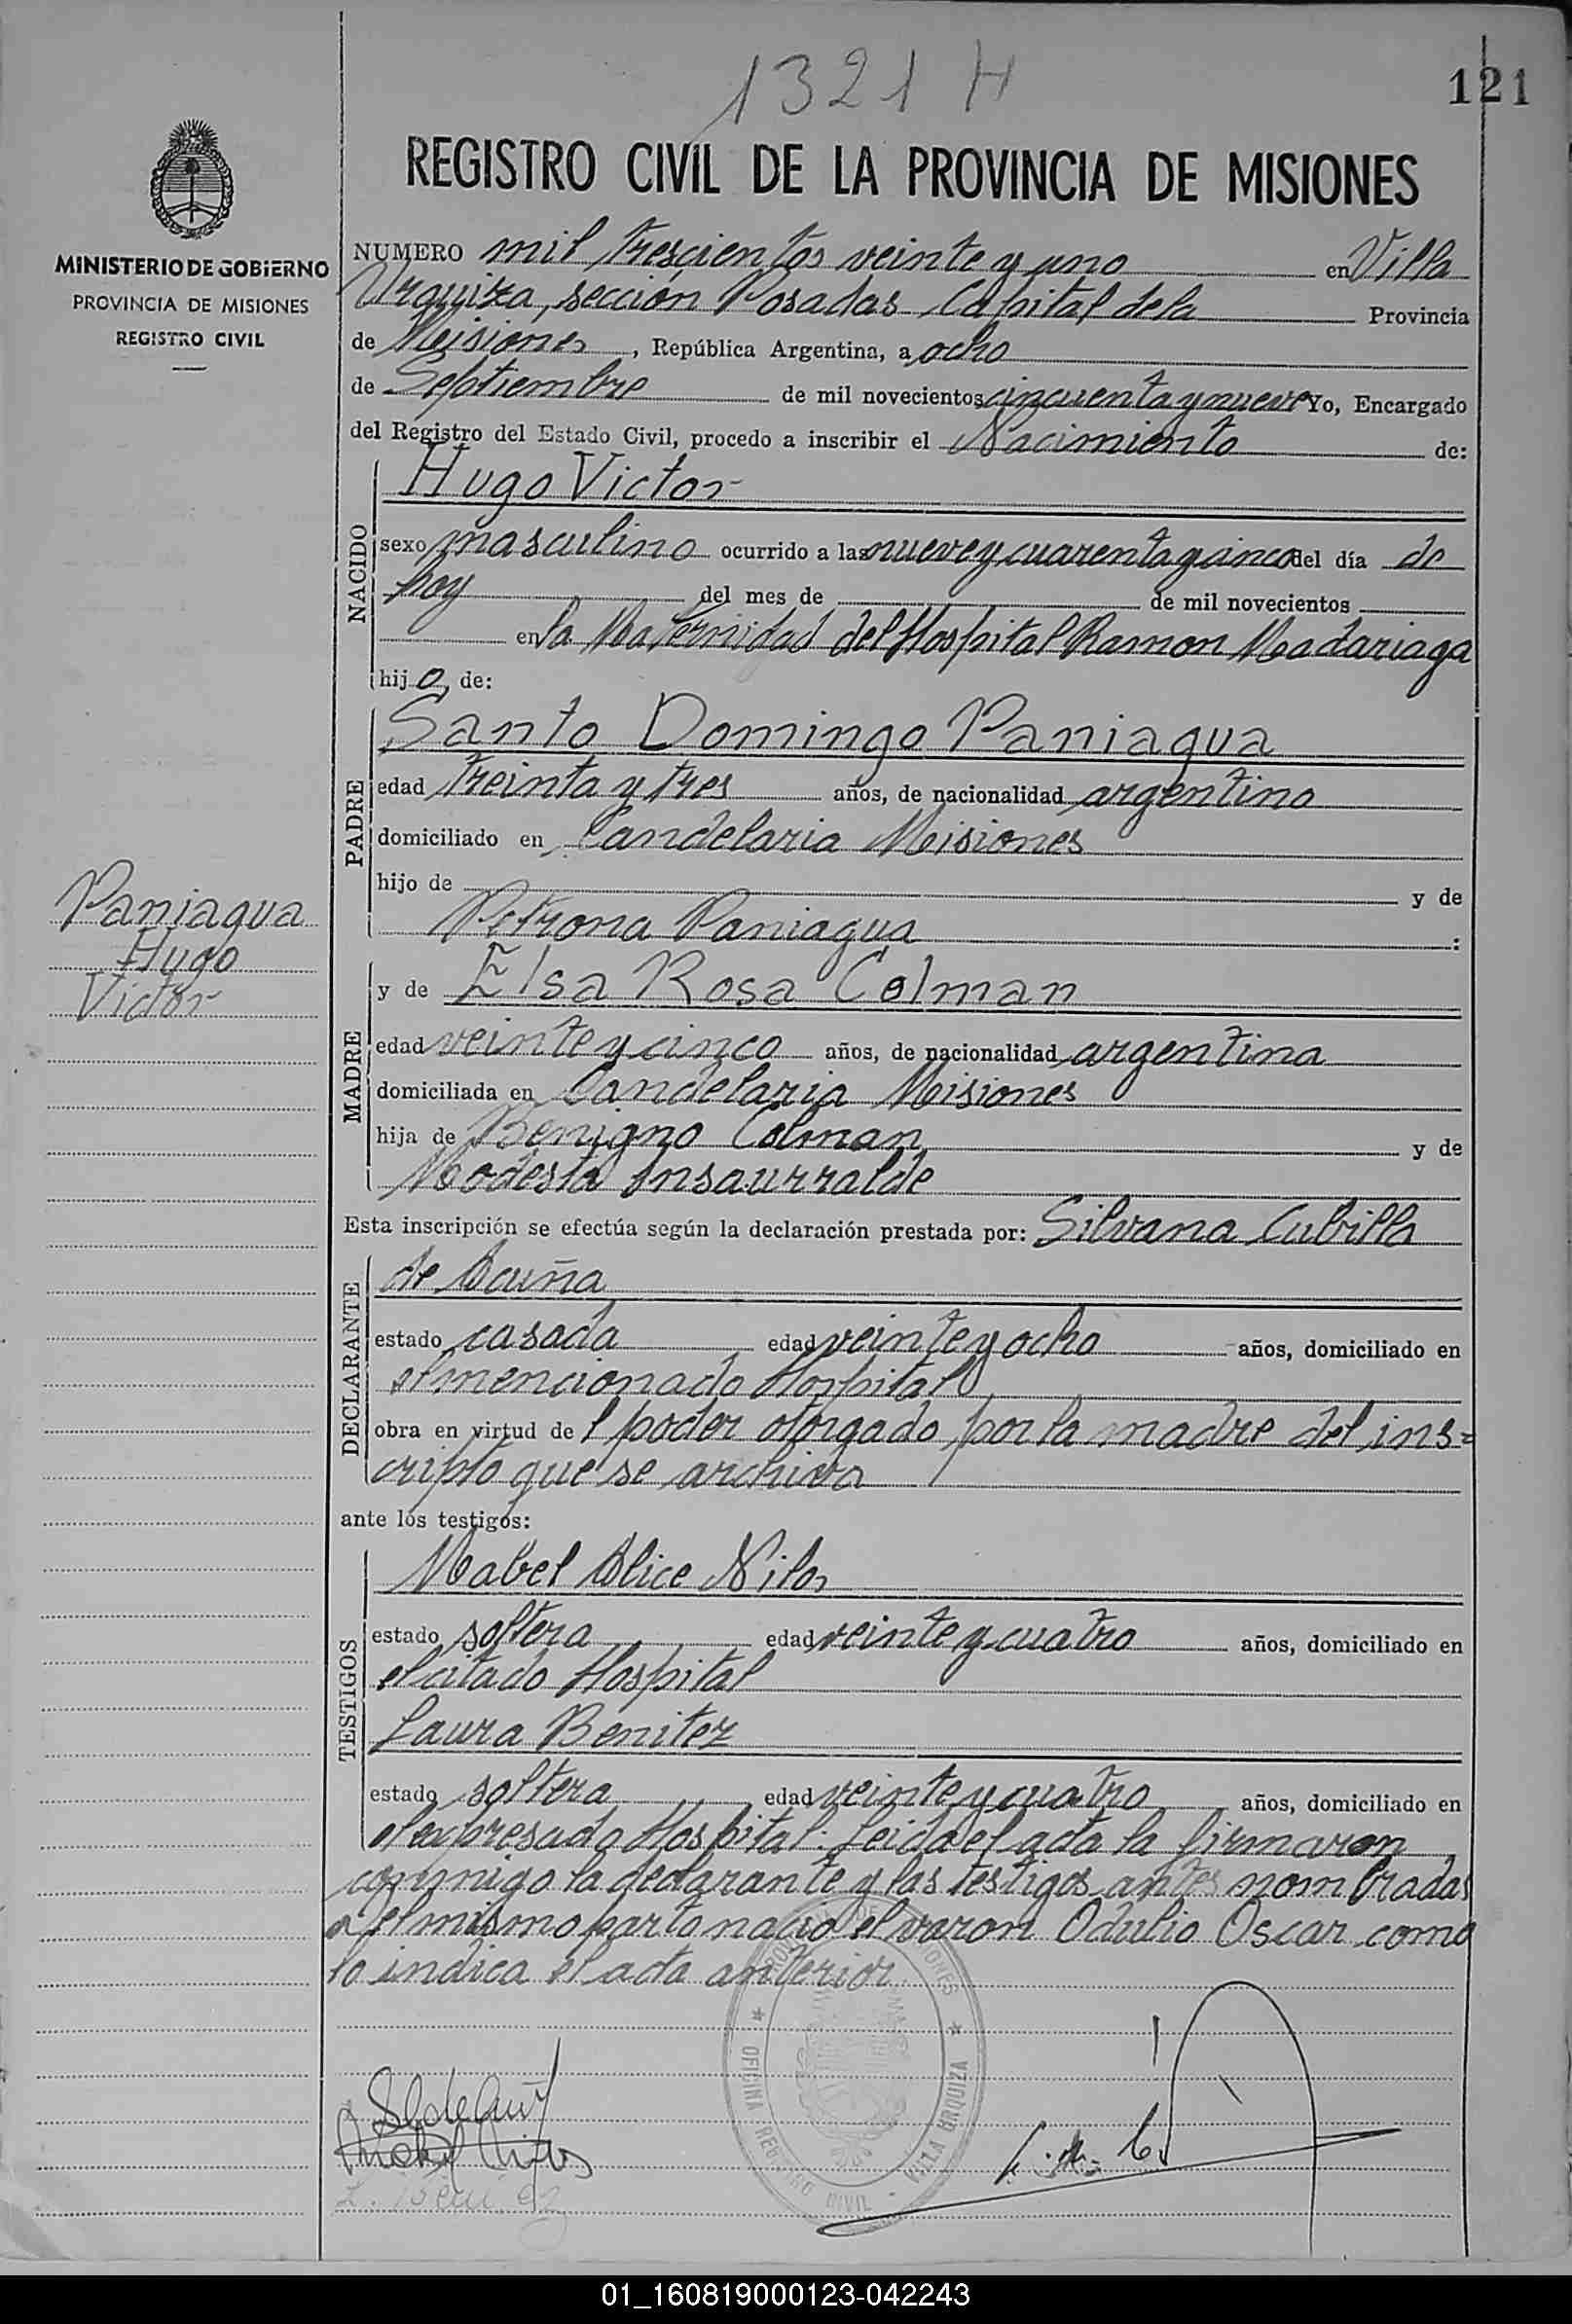 1321 H
121
REGISTRO CIVIL DE LA PROVINCIA DE MISIONES
MINISTERIO DE GOBIERNO
PROVINCIA DE MISIONES
REGISTRO CIVIL
NUMERO mil trescientos veinte y uno en Villa
Urquiza, sección Posadas Capital de la Provincia
de Misiones, República Argentina, a ocho
de Septiembre de mil novecientos cincuenta y nueve Yo, Encargado
del Registro del Estado Civil, procedo a inscribir el Nacimiento de:
NACIDO
Hugo Victor
sexo masculino ocurrido a las nueve y cuarenta y cinco del día de
hoy del mes de de mil novecientos
en la Maternidad del Hospital Ramon Madariaga
hijo, de:
PADRE
Santo Domingo Paniagua
edad treinta y tres años, de nacionalidad argentino
domiciliado en Candelaria Misiones
hijo de y de
Petrona Paniagua :
Paniagua
Hugo
Victor
MADRE
y de Elsa Rosa Colman
edad veinte y cinco años, de nacionalidad argentina
domiciliada en Candelaria Misiones
hija de Benigno Colman y de
Modesta Insaurralde
Esta inscripción se efectúa según la declaración prestada por: Silvana Cubilla
DECLARANTE
de Acuña
estado casada edad veinte y ocho años, domiciliado en
el mencionado Hospital
obra en virtud del poder otorgado por la madre del ins=
cripto que se archiva
ante los testigos:
TESTIGOS
Mabel Alice Nilos
estado soltera edad veinte y cuatro años, domiciliado en
el citado Hospital
Laura Benitez
estado soltera edad veinte y cuatro años, domiciliado en
el expresado Hospital. Leida el acta la firmaron
conmigo la declarante y las testigos antes nombradas
el mismo parto nació el varon Odulio Oscar como
lo indica el acta anterior
OFICINA REGISTRO CIVIL - VILLA URQUIZA
01_160819000123-042243